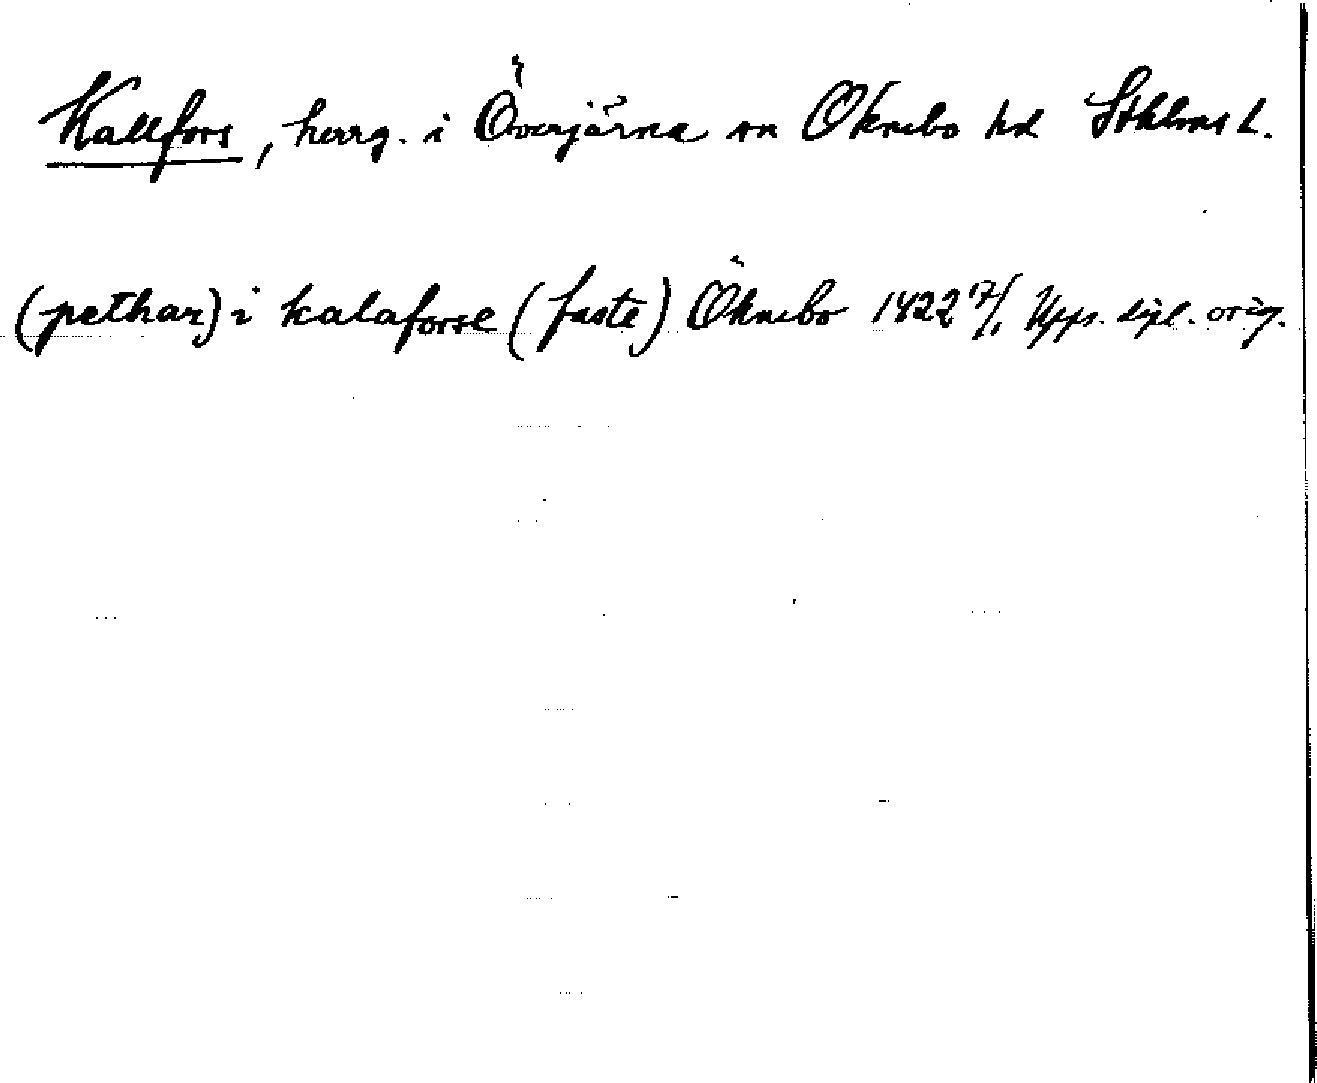 Kallfors, herrg. i Överjärna sn Öknebo hd Sthlms l.
(pethar) i kalaforse (faste) Öknebo 1422 17/1 Upps. dipl. orig.